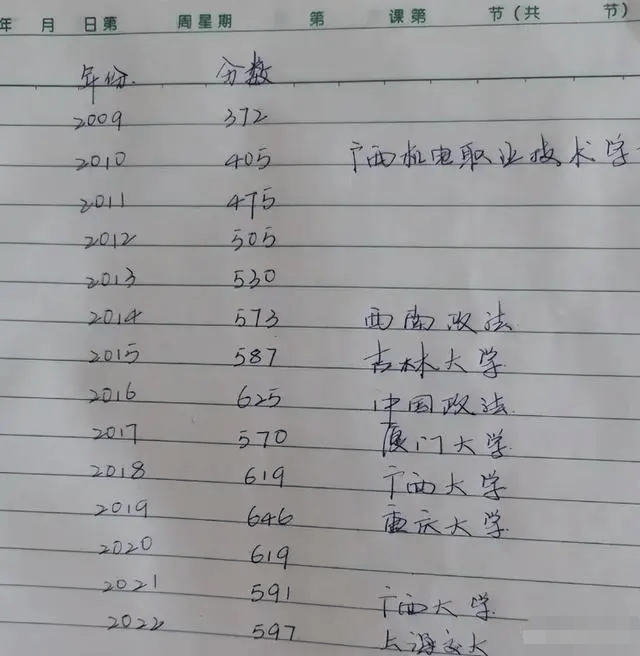 年 月 日第 周星期 第 课第 节(共 节)
年份 分数
2009 372
2010 405 广西机电职业技术学
2011 475
2012 505
2013 530
2014 573 西南政法
2015 587 吉林大学
2016 625 中国政法
2017 570 厦门大学
2018 619 广西大学
2019 646 重庆大学
2020 619
2021 591 广西大学
2022 597 上海交大